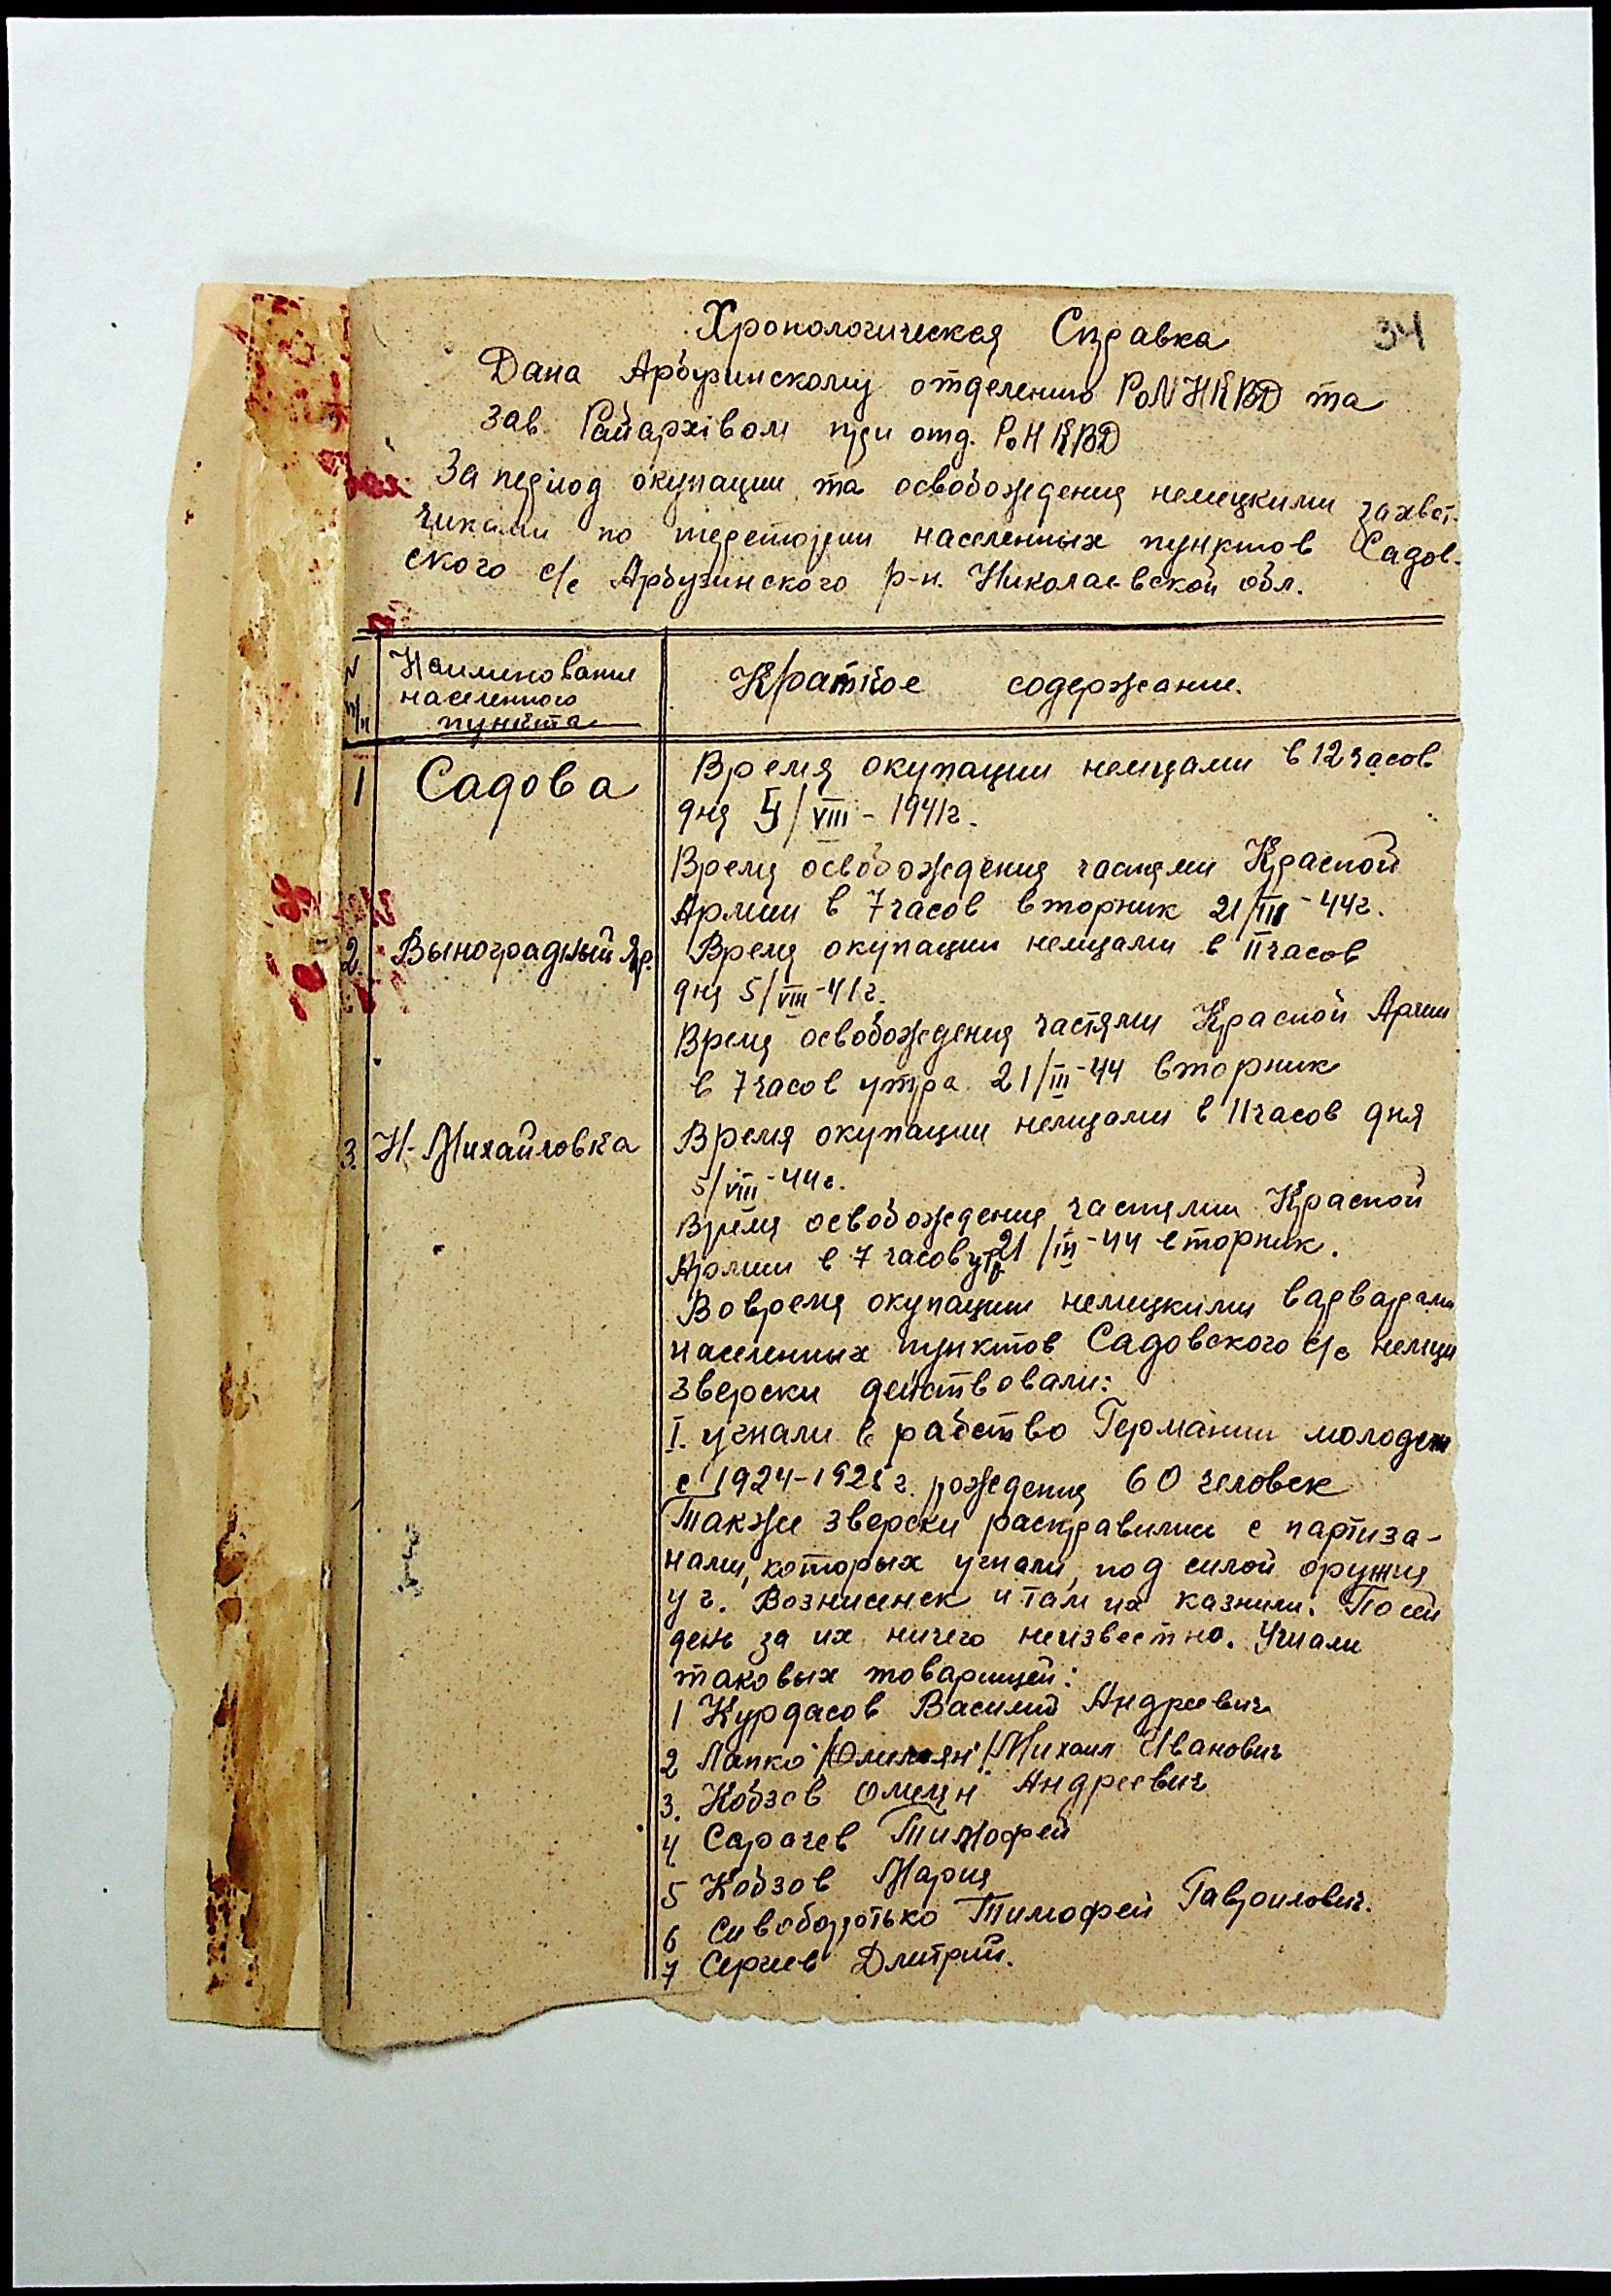 34
Хронологическая Справка
Дана Арбузинскому отделению РоНКВД та
зав Райархівом при отд. РоНКВД
За період окупации та освобождения немецкими захват-
чиками по теретории населенных пунктов Садов-
ского с/с Арбузинского р-н. Николаевской обл.
N п/п
Наиминования
населенного
пункта
Краткое содержание.
1
Садова
Время окупации немцами в 12 часов
дня 5/VIII - 1941г.
Время освобождения частями Красной
Армии в 7 часов вторник 21/III - 44г.
2. Выноградный Яр.
Время окупации немцами в 11 часов
дня 5/VIII - 41г.
Время освобождения частями Красной Армии
в 7 часов утра 21/III - 44 вторник
3. Н-Михайловка
Время окупации немцами в 11 часов дня
5/VIII - 44г.
Время освобождения частями Красной
Армии в 7 часов утр 21/III - 44 вторник.
Вовремя окупации немецкими варварами
населенных пунктов Садовского с/с немци
зверски действовали:
I. угнали в рабство Германии молодеж
с 1924-1925 г. рождения 60 человек
Также зверски расправились с партиза-
нами, которых угнали, под силой оружия
у г. Вознисенск и там их казнили. По сей
день за их ничего неизвестно. Угнали
таковых товарищей:
1 Курдасов Василий Андреевич
2 Лапко /Омельян/ Михаил Иванович
3. Кобзов Омелян Андреевич
4 Сарачев Тимофей
5 Кобзов Мария
6 Сивоборотько Тимофей Гаврилович.
7 Сергиев Дмитрий.